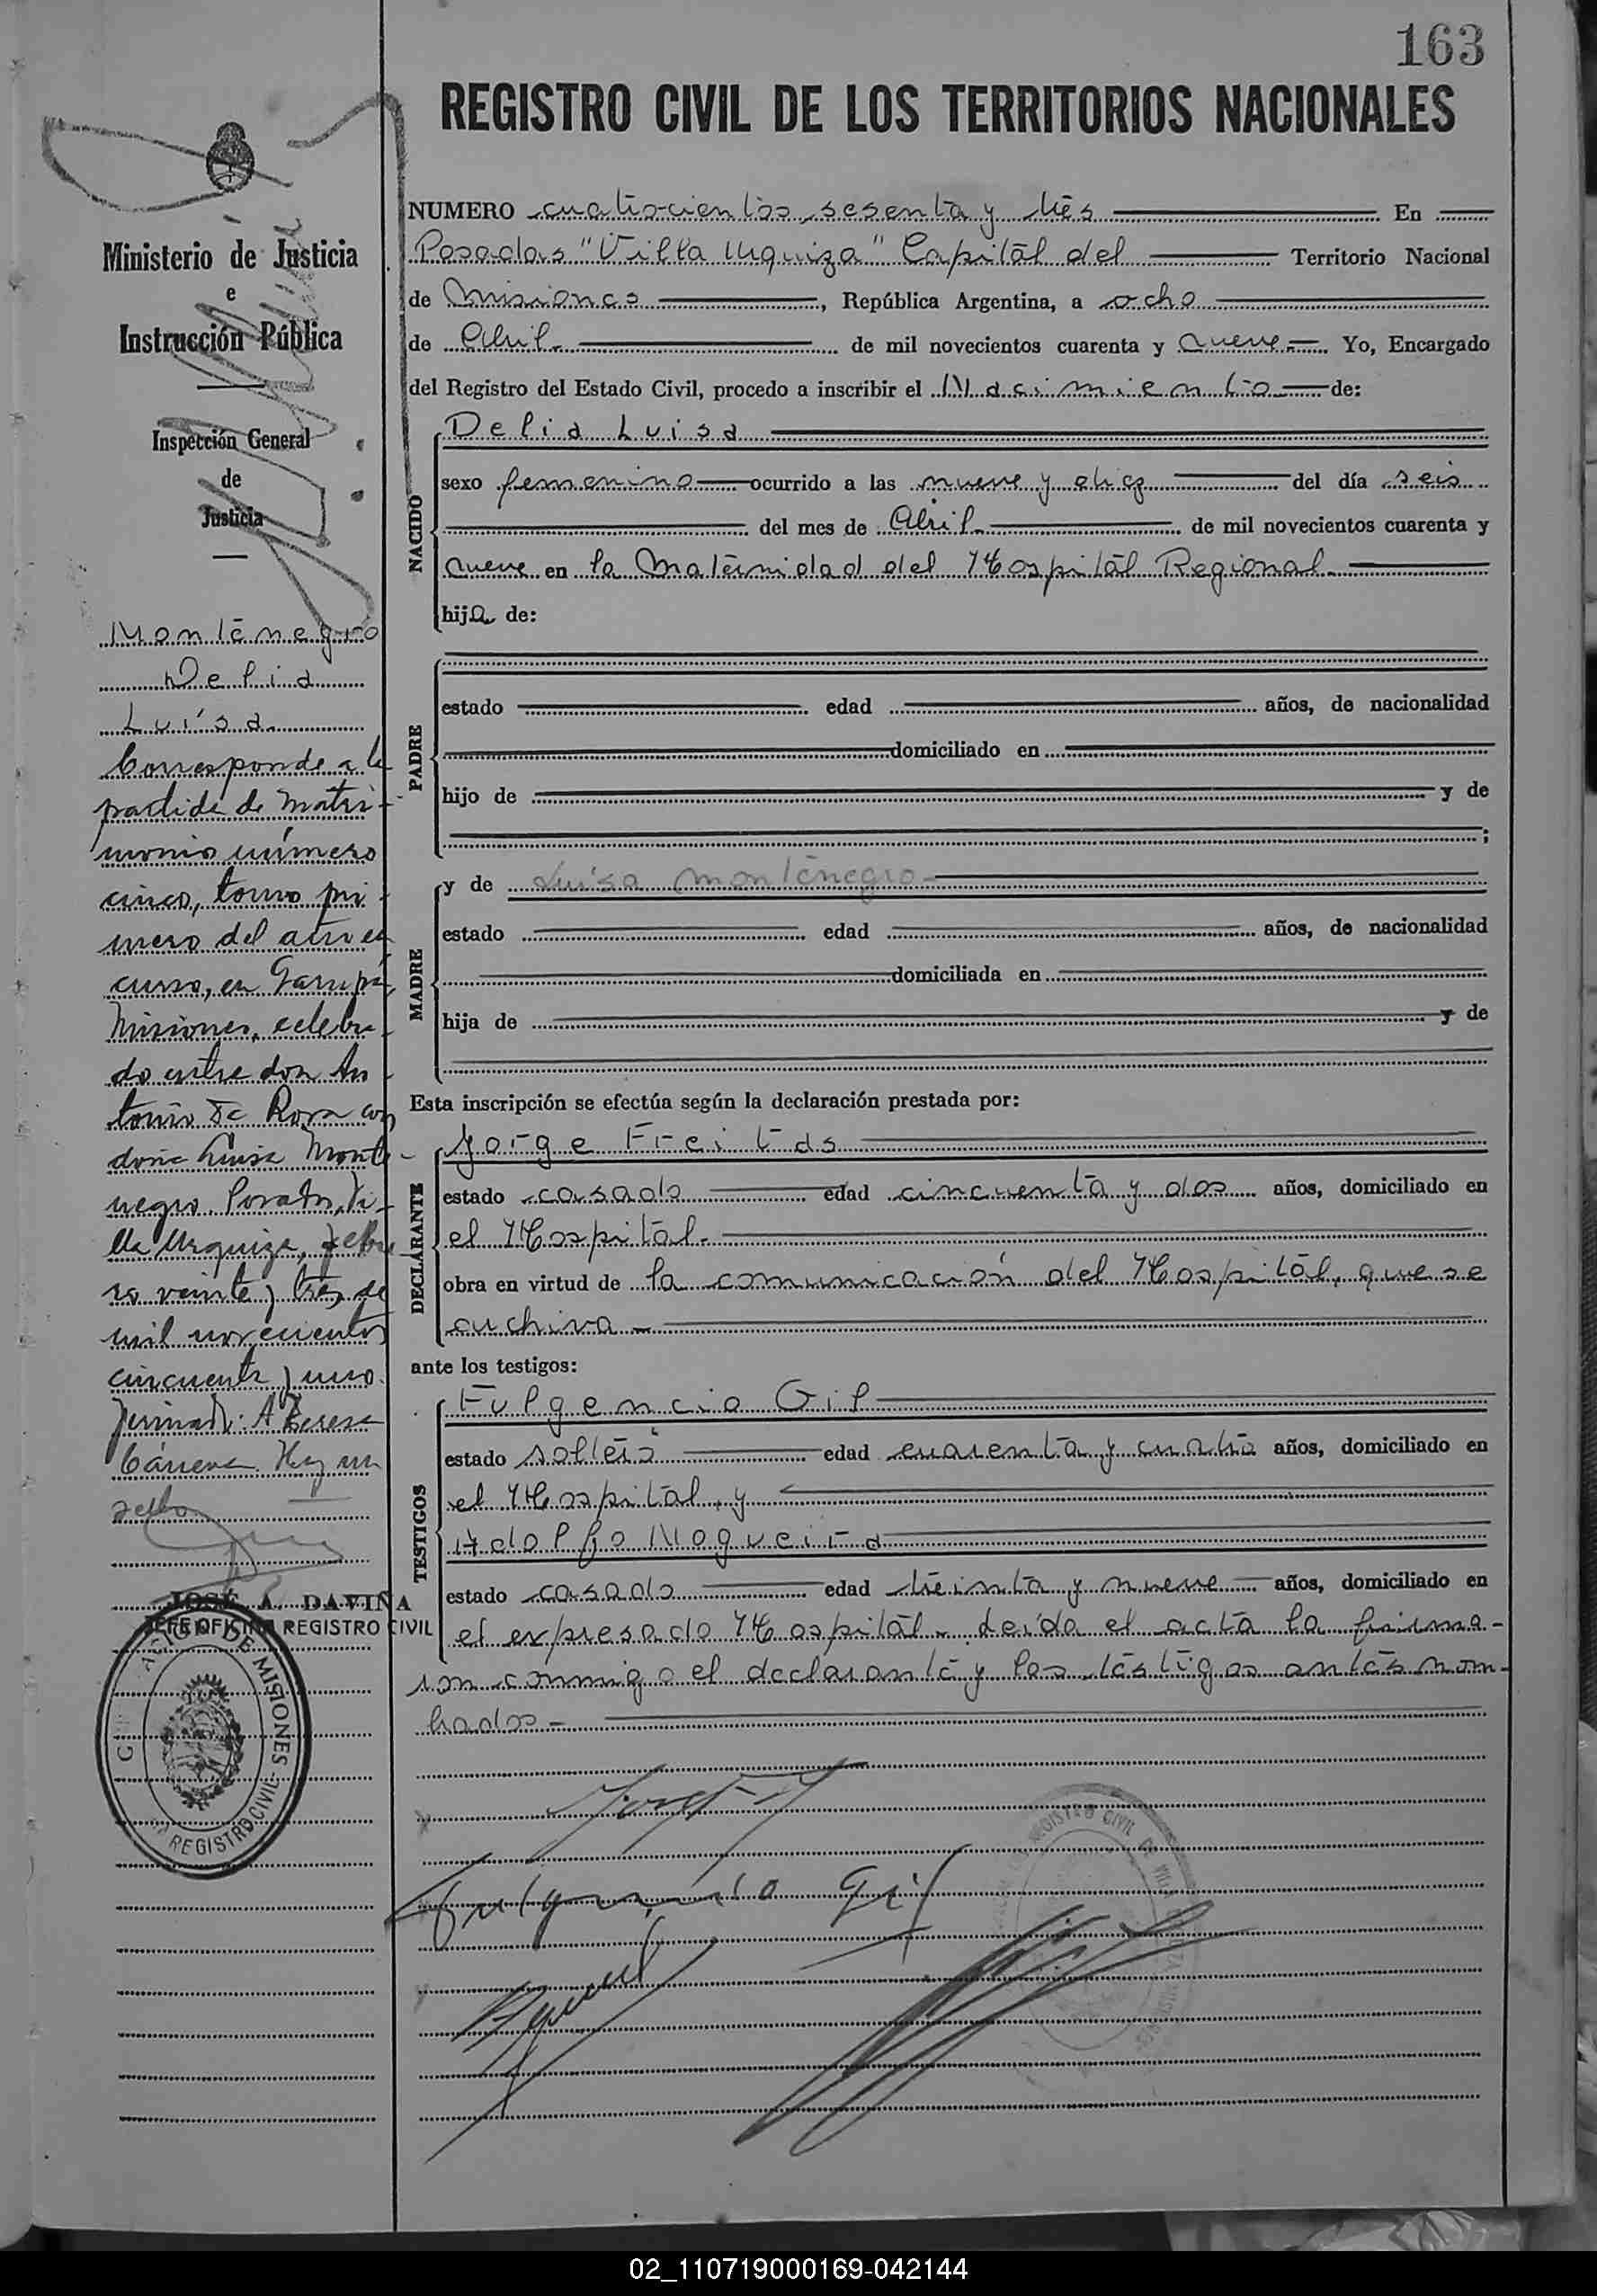 163
REGISTRO CIVIL DE LOS TERRITORIOS NACIONALES
Ministerio de Justicia
e
Instrucción Pública
Inspección General
de
Justicia
Montenegro
Delia
Luisa.
Corresponde a la
partida de matri-
monio número
cinco, tomo pri-
mero del año en
curso, en Garupá,
Misiones, celebra-
do entre don An-
tonio Da Rosa con
doña Luisa Monte-
negro. Posadas, Vi-
lla Urquiza, febre-
ro veinte y tres de
mil novecientos
cincuenta y uno.
Firmado: A. Teresa
Hay un
sello
JOSÉ A. DAVIÑA
JEFE OFICINA REGISTRO CIVIL
DE MISIONES - REGISTRO CIVIL
NUMERO cuatrocientos sesenta y tres En
Posadas "Villa Urquiza" Capital del Territorio Nacional
de Misiones, República Argentina, a ocho
de Abril de mil novecientos cuarenta y nueve. Yo, Encargado
del Registro del Estado Civil, procedo a inscribir el Nacimiento de:
NACIDO
Delia Luisa
sexo femenino ocurrido a las nueve y diez del día seis
del mes de Abril de mil novecientos cuarenta y
nueve en la Maternidad del Hospital Regional.
hija de:
PADRE
estado edad años, de nacionalidad
domiciliado en
hijo de y de
;
MADRE
y de Luisa Montenegro
estado edad años, de nacionalidad
domiciliada en
hija de y de
Esta inscripción se efectúa según la declaración prestada por:
DECLARANTE
Jorge Freitas
estado casado edad cincuenta y dos años, domiciliado en
el Hospital.
obra en virtud de la comunicación del Hospital, que se
archiva
ante los testigos:
TESTIGOS
Fulgencio Gil
estado soltero edad cuarenta y cuatro años, domiciliado en
el Hospital, y
Adolfo Nogueira
estado casado edad treinta y nueve años, domiciliado en
el expresado Hospital. Leida el acta la firma-
ron conmigo el declarante y los testigos antes nom-
brados
Fulgencio Gil
REGISTRO CIVIL DE
02_110719000169-042144